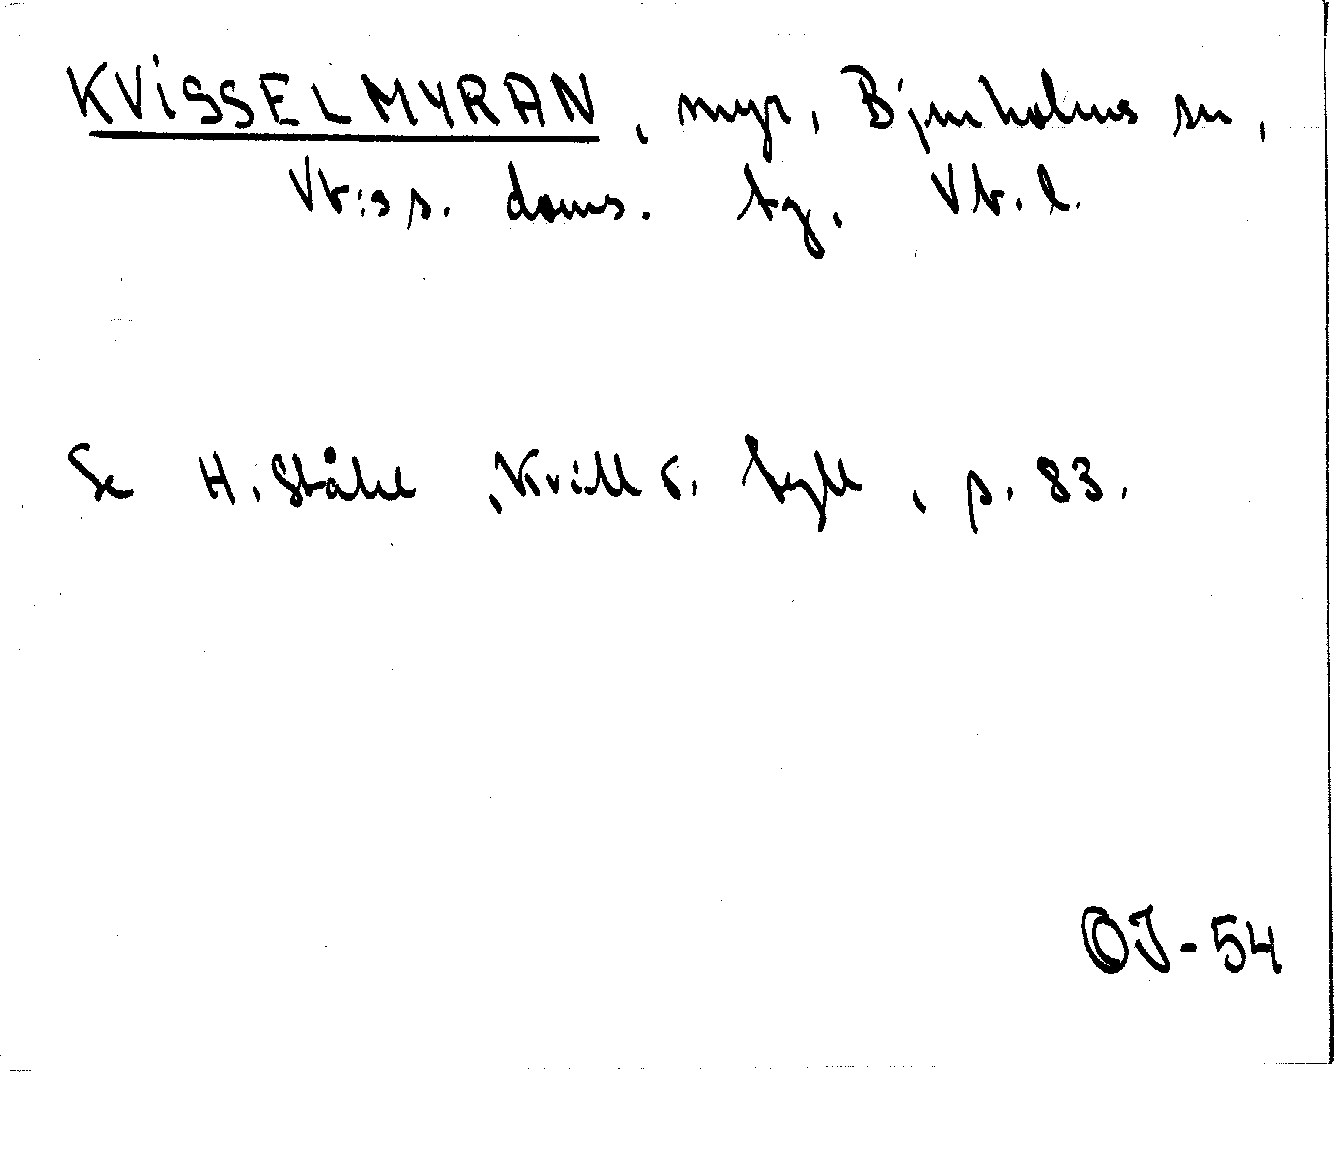 KVISSELMYRAN, myr, Bjurholms sn,
Vb:s s. doms. tg. Vb. l.
Se H. Ståhl, Kvill o. tyll, p. 83.
OJ-54